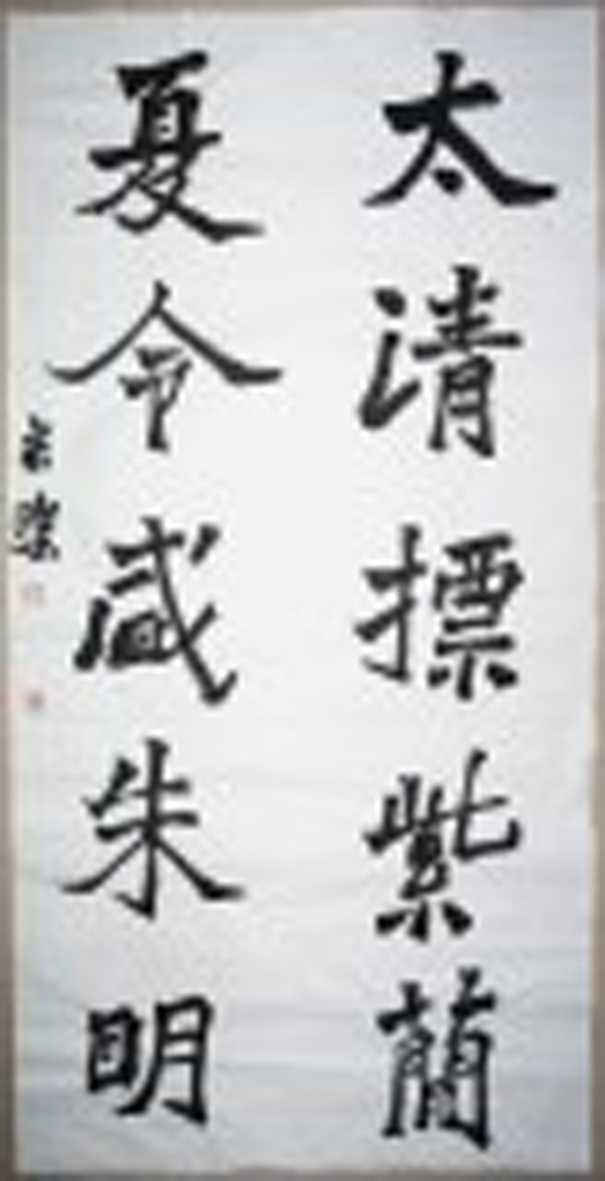 太清摽紫蕳
夏令咸朱明